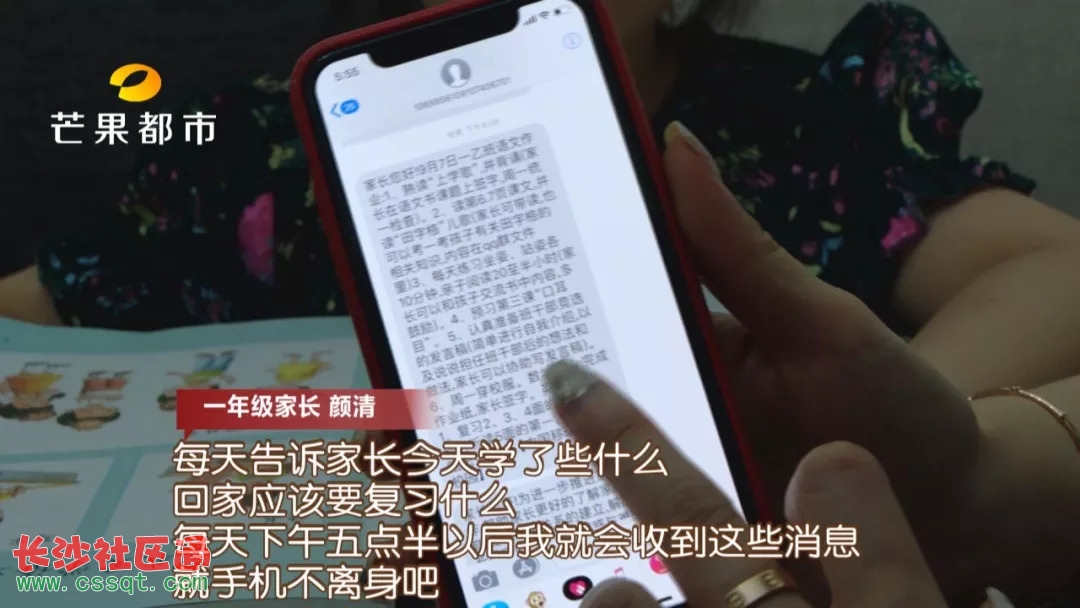 芒果都市
5:55
家长您好!9月7日一乙班语文作
业:1、熟读“上学歌”,并背诵(家
长在语文书课题上签字,周一统
一检查)。2、读第6.7页课文,并
读“田字格”儿歌(家长可带读,也
可以考一考孩子有关田字格的
相关知识,内容在qq群文件
里)3、每天练习坐姿、站姿各
10分钟,亲子阅读20至半小时(家
长可以和孩子交流书中内容,多
鼓励)。4、预习第三课“口耳
目”。5、认真准备班干部竞选
的发言稿(简单进行自我介绍,以
及说说担任班干部后的想法和
做法,家长可以协助写发言稿)。
6、周一穿校服。数
完成
作业纸,家长签字。
1、复习2、3、4面
为进一步推进
家长更好的了解
的建立,解
一年级家长 颜清
每天告诉家长今天学了些什么
回家应该要复习什么
每天下午五点半以后我就会收到这些消息
就手机不离身吧
长沙社区通
www.cssqt.com